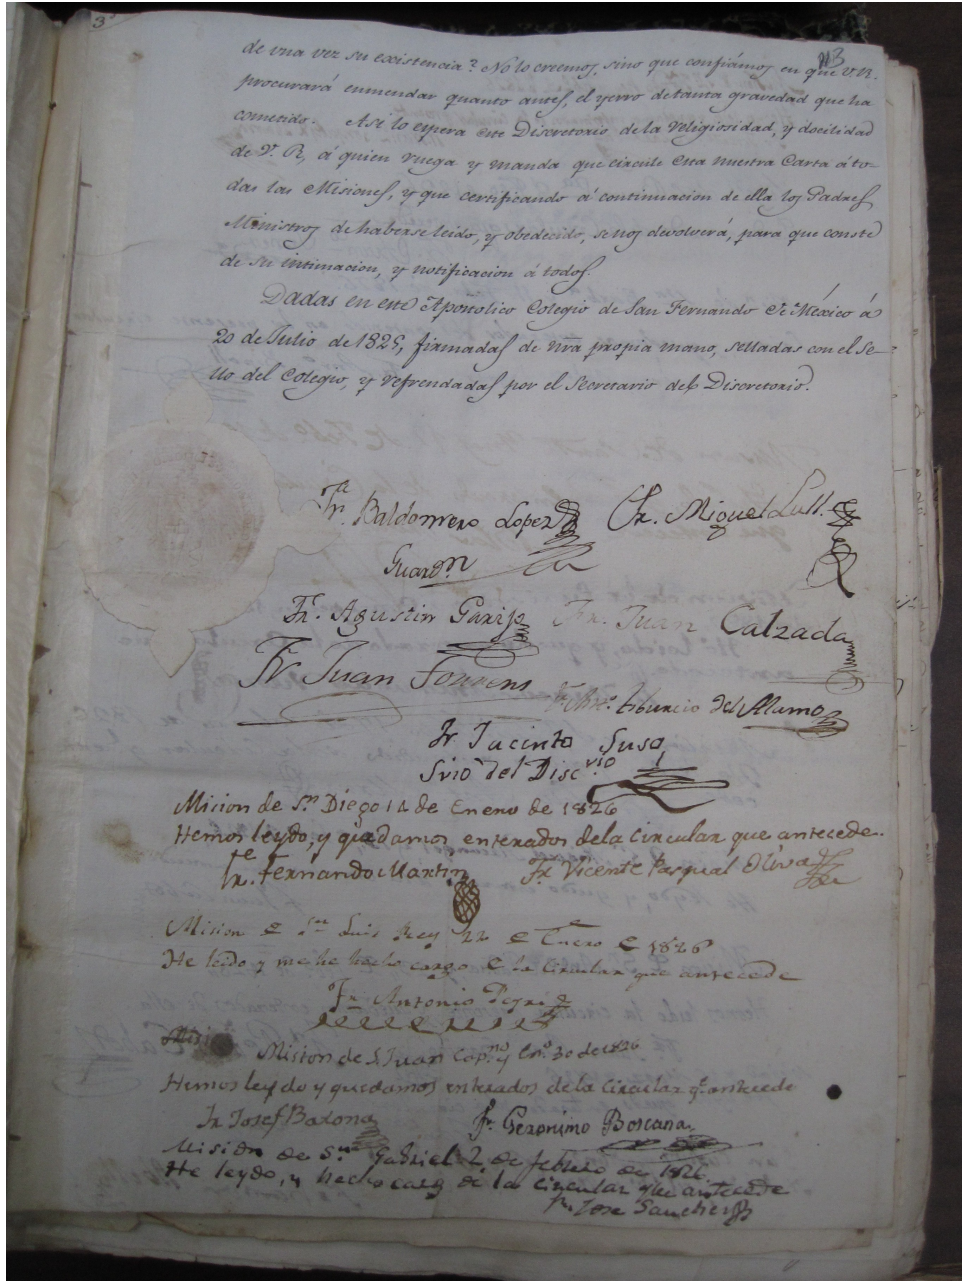 3
113
de vna vez su existencia? No lo creemos, sino que confiámos en que V.R.
procurará enmendar quanto antes, el yerro de tanta gravedad que ha
cometido. Así lo espera este Discretorio de la religiosidad, y docilidad
de V. R, á quien ruega y manda que circule esta nuestra Carta á to-
das las Misiones, y que certificando á continuacion de ella los Padres
Ministros de haberse leido, y obedecido, se nos devolverá, para que conste
de su intimacion, y notificacion á todos.
Dadas en este Apostolico Colegio de San Fernando de México á
20 de Julio de 1825, firmadas de nra propia mano, selladas con el Se-
llo del Colegio, y refrendadas por el Secretario del Discretorio.
Fr. Baldomero Lopez Fr. Miguel Lull.
Guardn
Fr. Agustin Garijo Fr. Juan Calzada
Fr Juan Torrens
Tiburcio del Alamo
Fr Jacinto Suso
Srio del Disc.rio
Micion de Sn Diego 14 de Enero de 1826
Hemos leydo, y quedamos enterados de la Circular que antecede.
Fr. Fernando Martin Fr. Vicente Pasqual Oliva
Mision de Sn Luis Rey 22 de Enero de 1826
He leido y me he hecho cargo de la Circular que antecede
Fr. Antonio Peyri
Misi
Mision de S Juan Cap.no y En.o 30 de 1826
Hemos leydo y quedamos enterados de la Circular q. antecede
Fr Josef Barona Fr. Geronimo Boscana
Mision de Sn Gabriel 2 de febrero de 1826
He leydo, y hecho cargo de la circular que antecede
Fr. Jose Sanchez